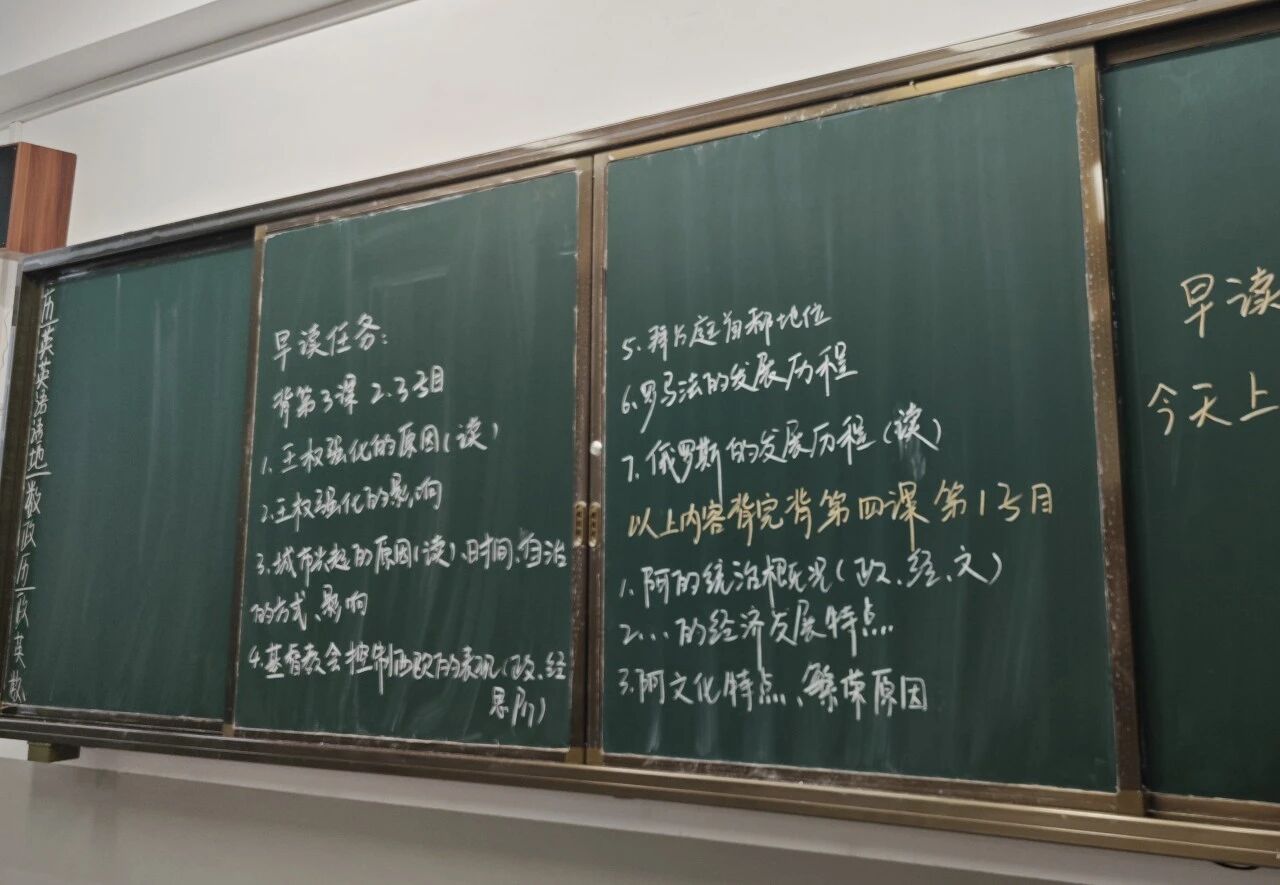 历英英语语地数政历政英数
早读任务:
背第3课 2.3子目
1.王权强化的原因(读)
2.王权强化的影响
3.城市兴起的原因(读)、时间、自治
的方式、影响
4.基督教会控制西欧的表现(政、经
思历)
5.拜占庭首都地位
6.罗马法的发展历程
7.俄罗斯的发展历程(读)
以上内容背完背第四课第1子目
1.阿的统治概况(政、经、文)
2...的经济发展特点
3.阿文化特点、繁荣原因
早读
今天上